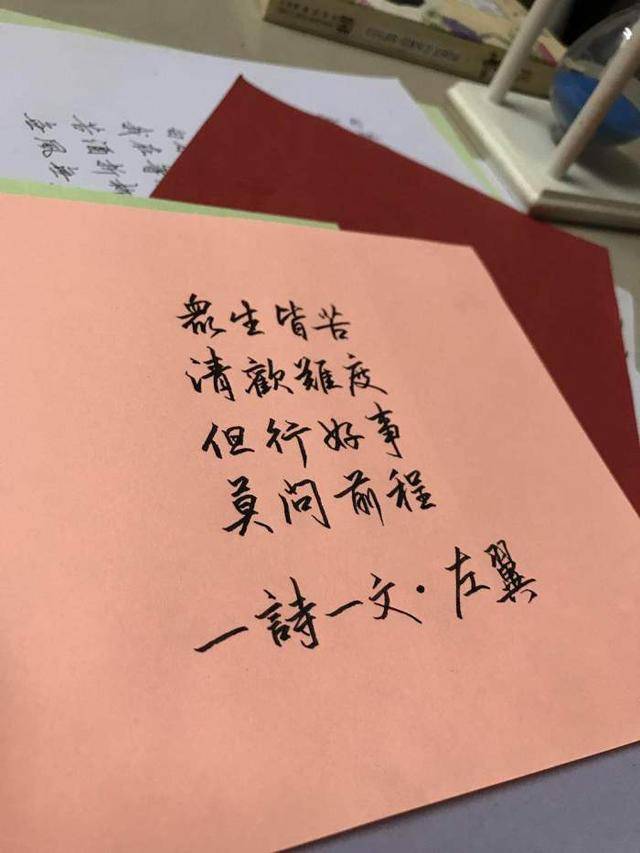 眾生皆苦
清歡難度
但行好事
莫問前程
一詩一文·左翼